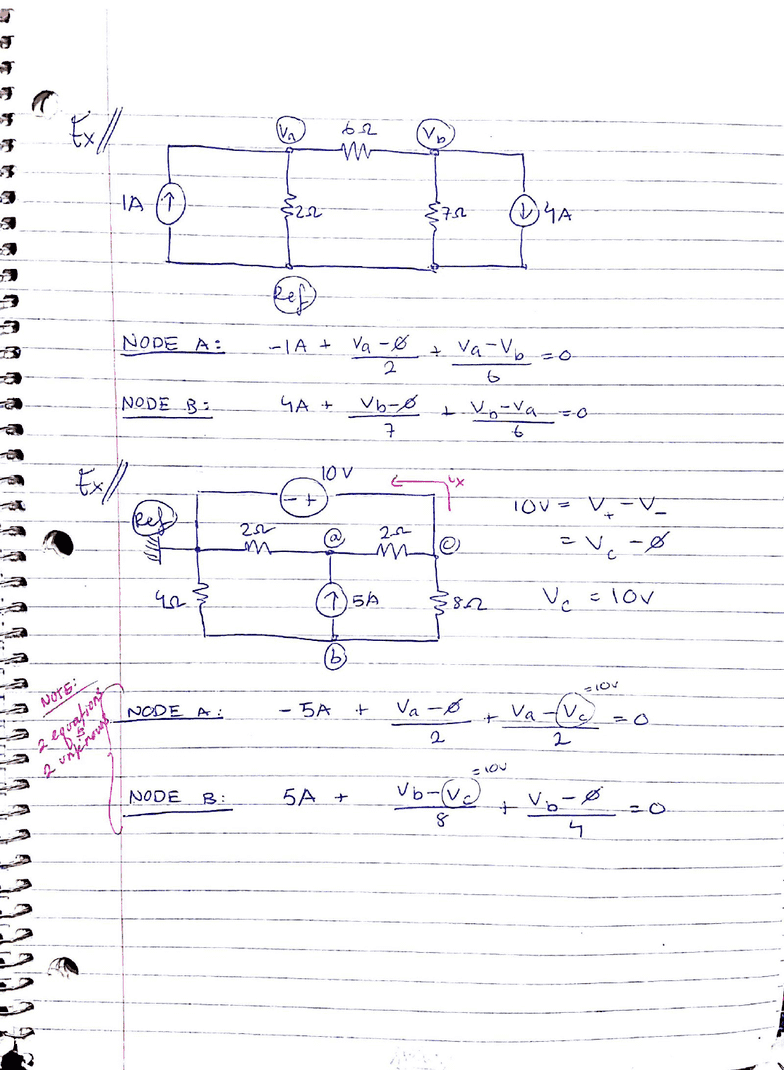 Ex//
Va 6Ω Vb
1A 2Ω 7Ω 4A
Ref
NODE A: -1A + (Va - 0)/2 + (Va - Vb)/6 = 0
NODE B: 4A + (Vb - 0)/7 + (Vb - Va)/6 = 0
Ex//
10V ix
- +
10V = V+ - V-
Ref 2Ω a 2Ω c
= Vc - 0
4Ω 5A 8Ω
Vc = 10V
b
NOTE:
2 equations
2 unknowns
NODE A: -5A + (Va - 0)/2 + (Va - (Vc))/2 = 0
=10V
NODE B: 5A + (Vb - (Vc))/8 + (Vb - 0)/4 = 0
=10V